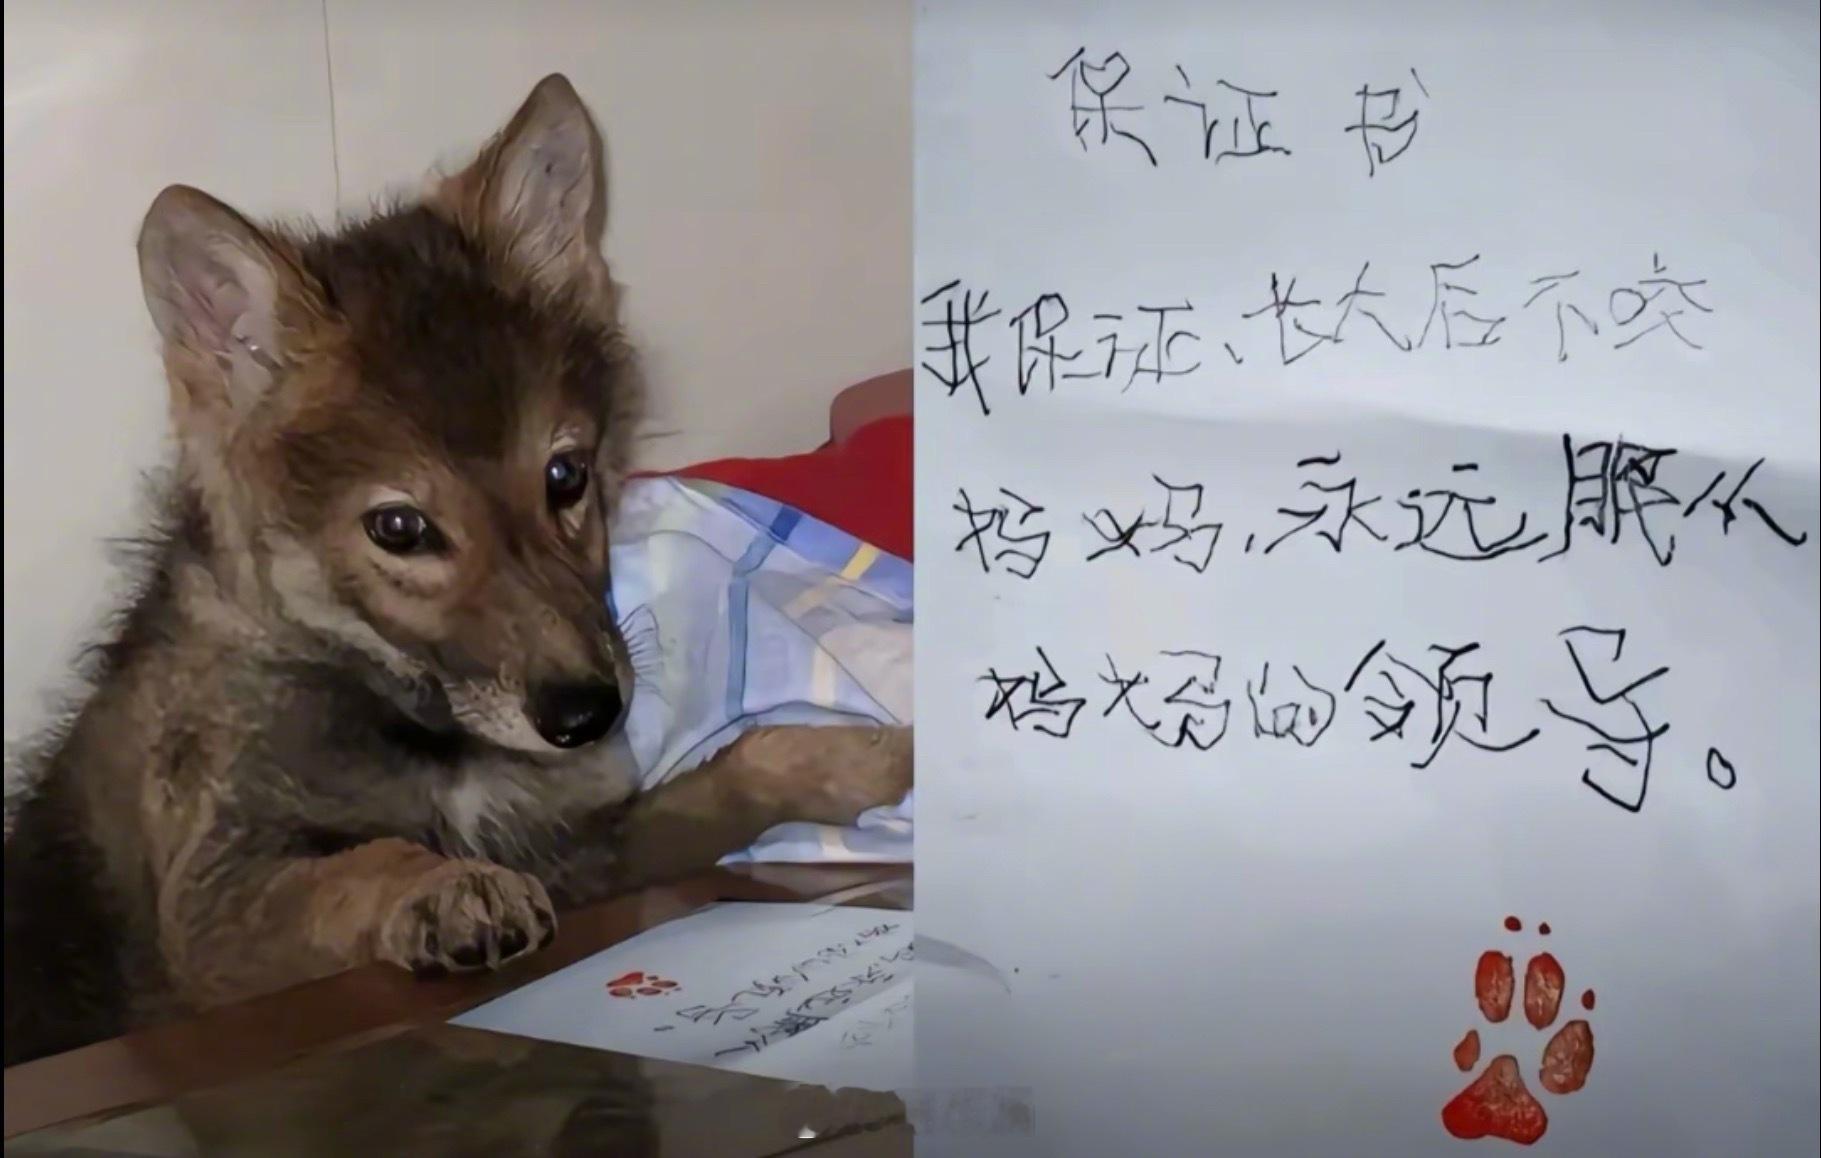 保证书
我保证、长大后不咬
妈妈，永远服从
妈妈的领导。